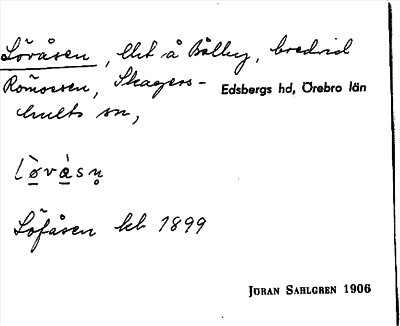 Lövåsen, Ålut å Bålby, bredvid
Romossen, Skagers-
hults sn,
Edsbergs hd, Örebro län
lø̀vàsn̥
Löfåsen kb 1899
JÖRAN SAHLGREN 1906